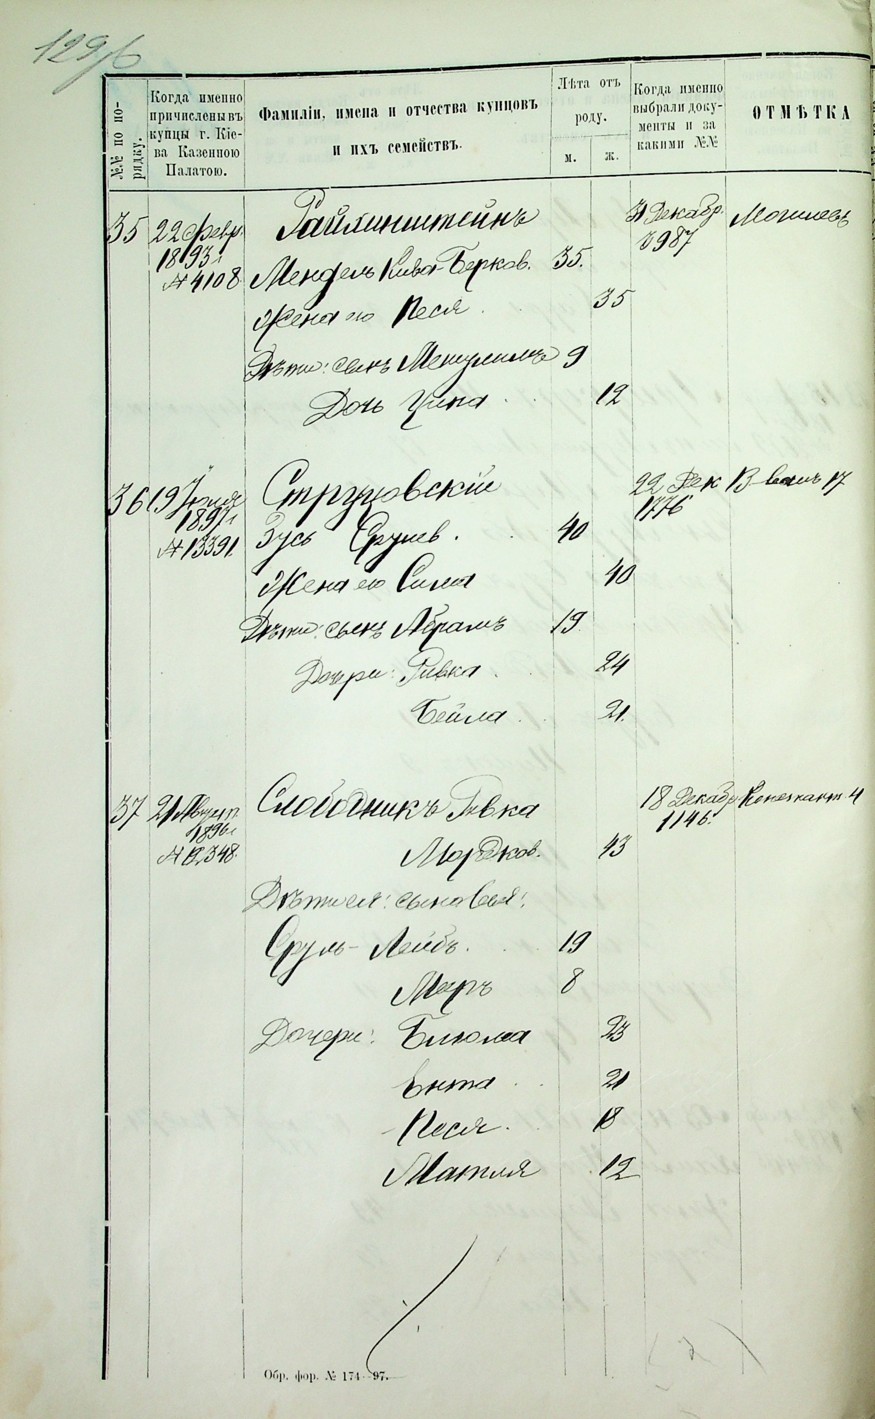 129/б
№№ по порядку.
Когда именно причислены въ купцы г. Кіева Казенною Палатою.
Фамиліи, имена и отчества купцовъ и ихъ семействъ.
Лѣта отъ роду.
м.
ж.
Когда именно выбрали документы и за какими №№
ОТМѢТКА
35 22 февр. Райхинштейнъ 31 Декабр. Могилевъ
1893 г. 3987
№ 4108 Мендель Кива-Берков. 35.
Жена его Песя 35
Дѣти: сынъ Мешулимъ 9
Дочь Ципа 12
36 19 Іюня Струцовскій 22 Дек
1897 г. 1776
№ 13391 Зусь Срулев. 40
Жена его Сима 40
Дѣти: сынъ Абрамъ 19
Дочери: Ривка 24
Бейла 21
37 21 Август. Слободникъ Ривка 18 Декабр
1896 г. 1146.
№ 12348 Мордков. 43
Дѣти ея: сыновья:
Сруль-Лейбъ. 19
Мееръ 8
Дочери: Блюма 23
Ента 21
Песя. 18
Матля 12
Обр. фор. № 174—97.